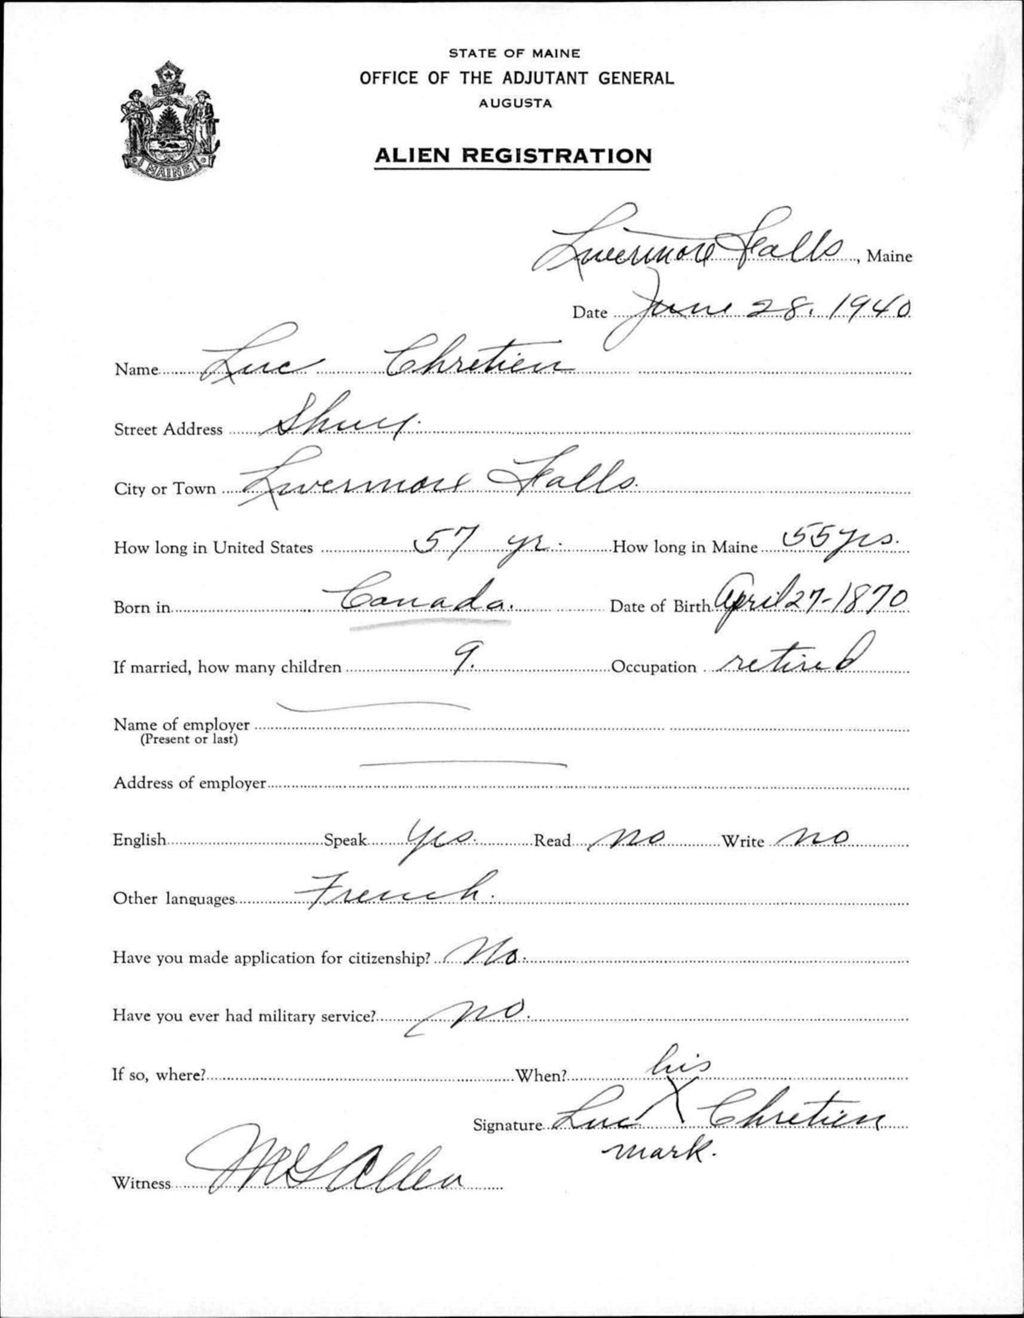 STATE OF MAINE
OFFICE OF THE ADJUTANT GENERAL
AUGUSTA
ALIEN REGISTRATION
MAINE
Livermore Falls, Maine
Date June 28, 1940
Name Luc Chretien
Street Address
City or Town Livermore Falls.
How long in United States 57 yr. How long in Maine 55 yrs.
Born in Canada. Date of Birth April 27-1870
If married, how many children 9. Occupation retired
Name of employer
(Present or last)
Address of employer
English Speak yes. Read no Write no
Other languages French.
Have you made application for citizenship? No.
Have you ever had military service? no.
If so, where? When?
his
Signature Luc X Chretien
mark.
Witness Allen